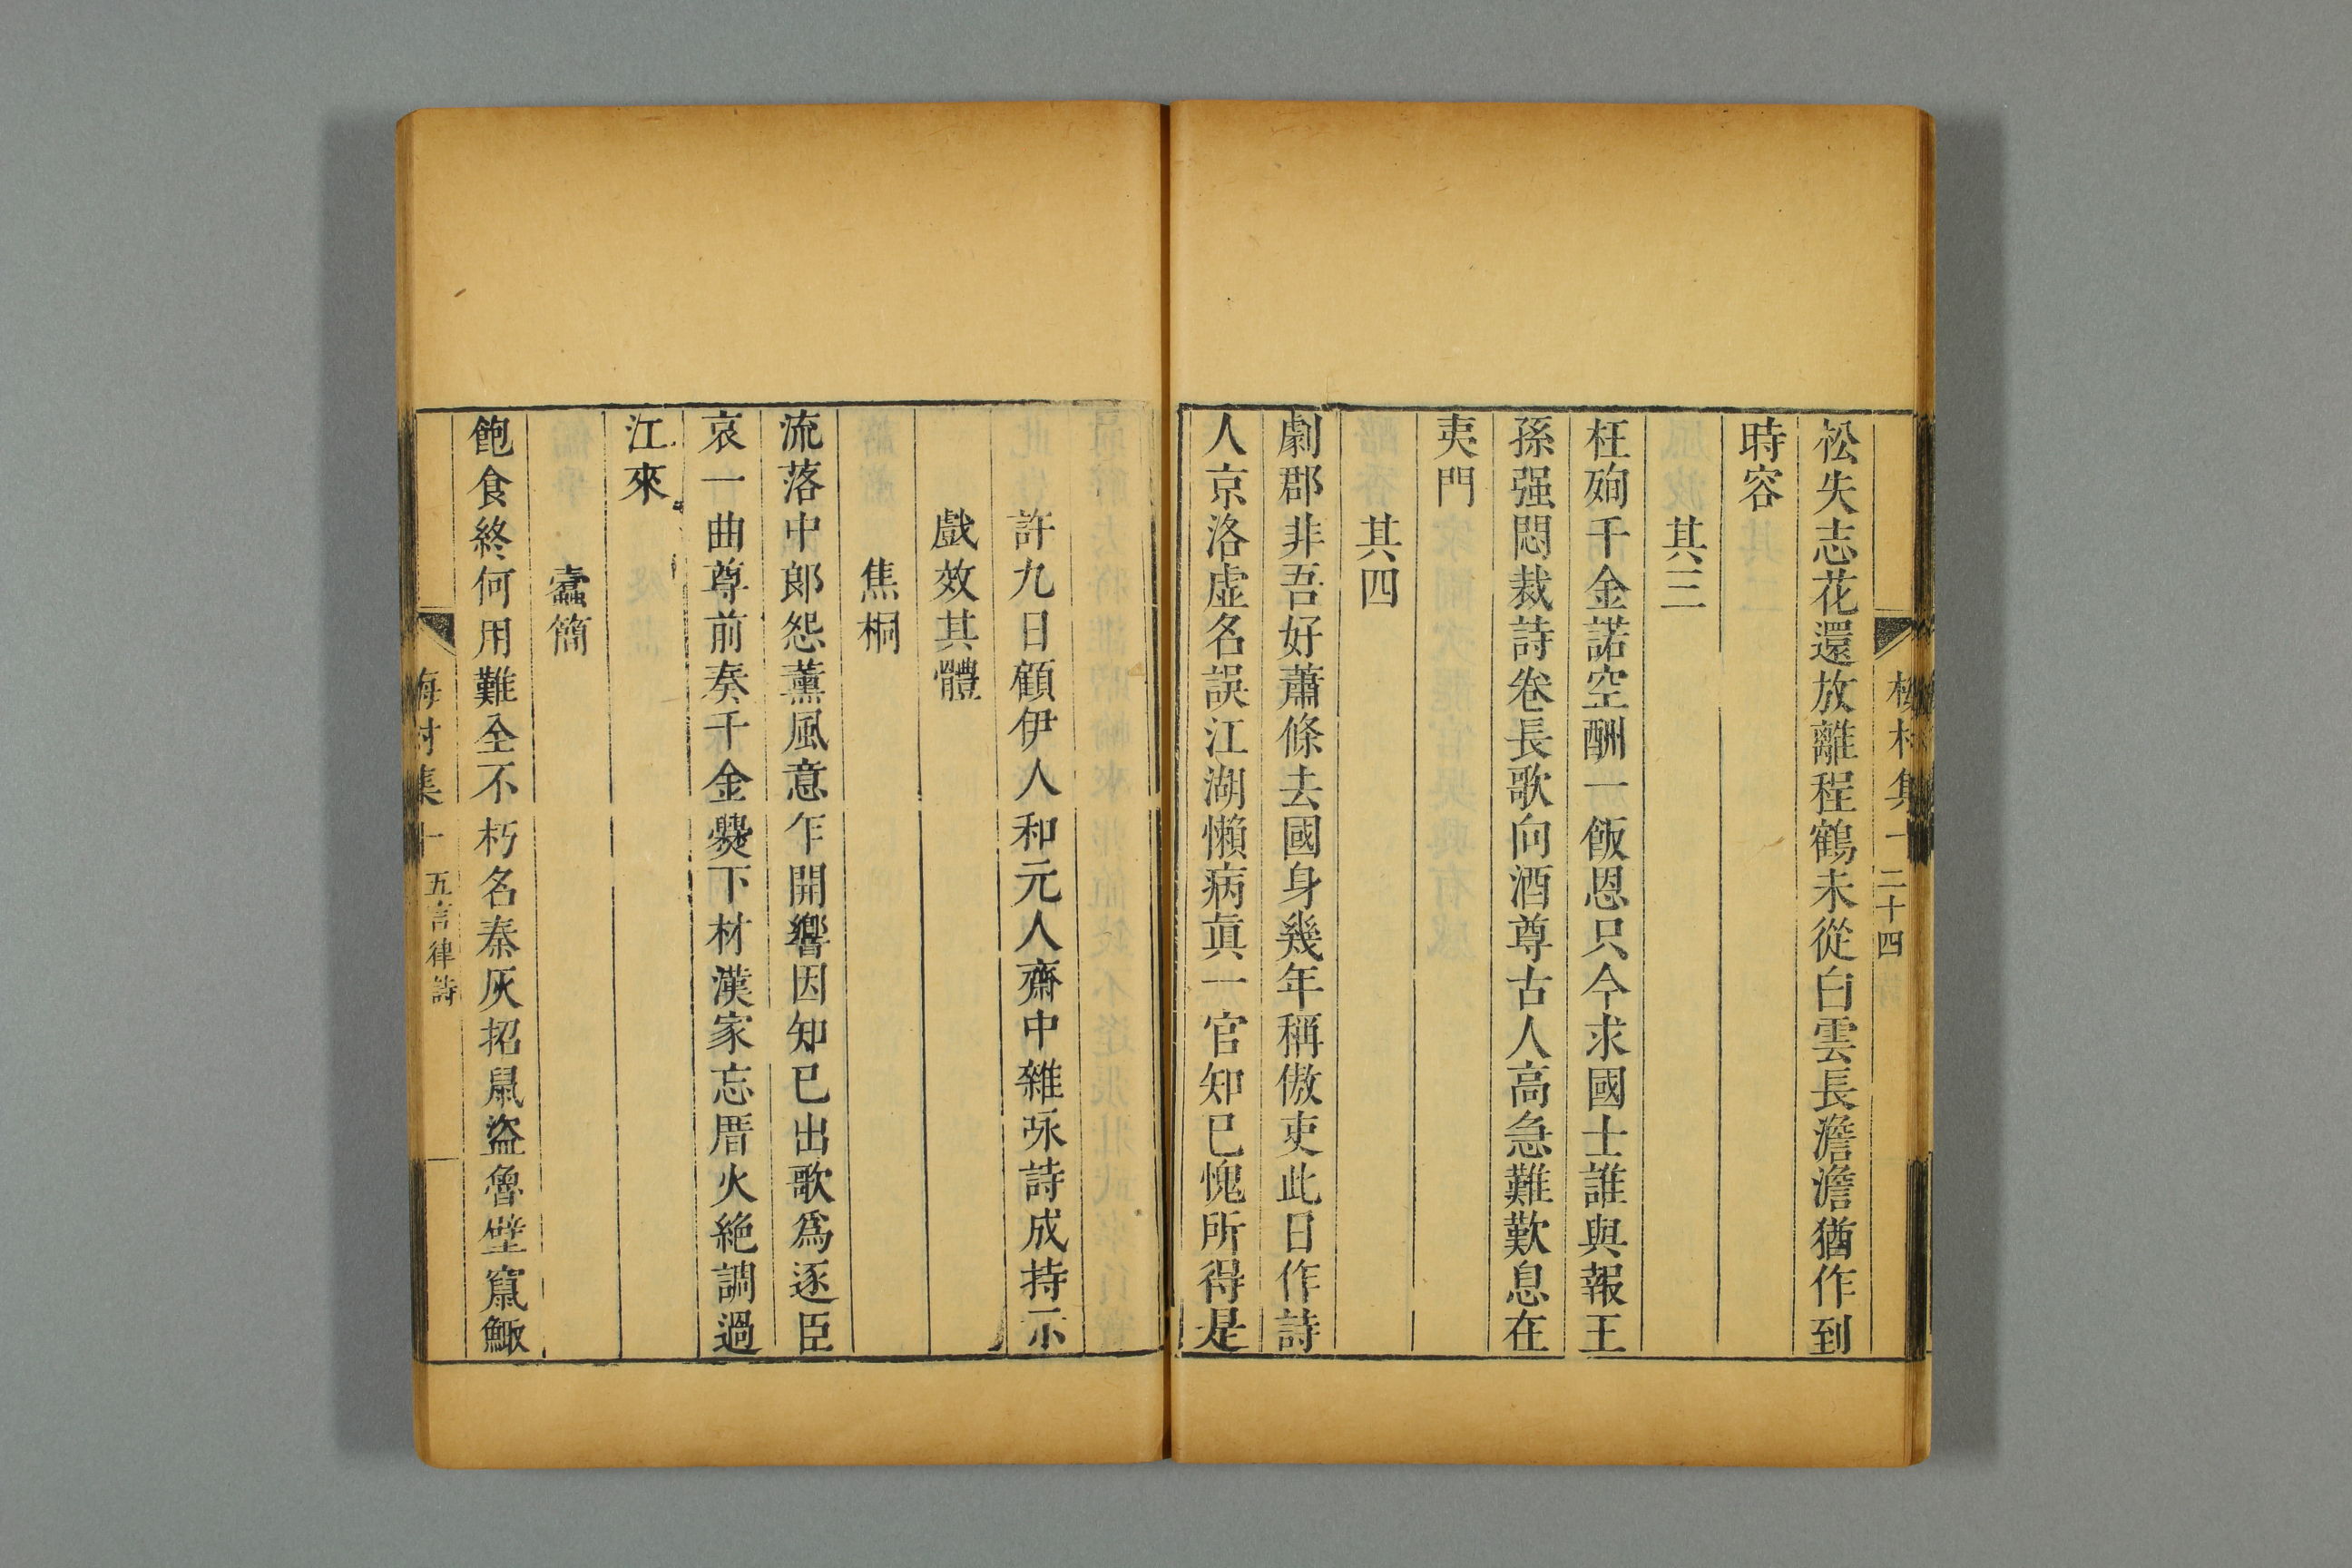 梅村集十 二十四
松失志花還放離程鶴未從白雲長澹澹猶作到
時容
其三
枉殉千金諾空酬一飯恩只今求國士誰與報王
孫强悶裁詩卷長歌向酒尊古人高急難歎息在
夷門
其四
劇郡非吾好蕭條去國身幾年稱傲吏此日作詩
人京洛虚名誤江湖懶病眞一官知已愧所得是
許九日顧伊人和元人齋中雜咏詩成持示
戲效其體
焦桐
流落中郎怨薰風意乍開響因知已出歌爲逐臣
哀一曲尊前奏千金爨下材漢家忘厝火絶調過
江來
蠹簡
飽食終何用難全不朽名秦灰招鼠盜魯壁竄鯫
梅村集十 五言律詩